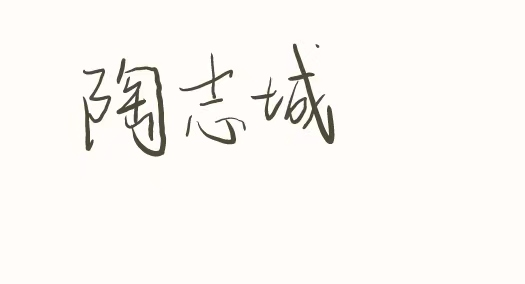 陶志城